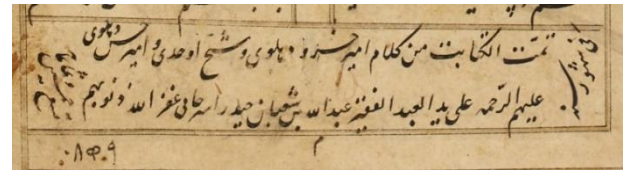 تمّت الکتابت من کلام امیر خسرو دهلوی و شیخ اوحدی و امیر حسن دهلوی
علیهم الرّحمه علی ید العبد الفقیر عبدالله بن شعبان حیدر غفر الله ذنوبهم
فی شهور سنه